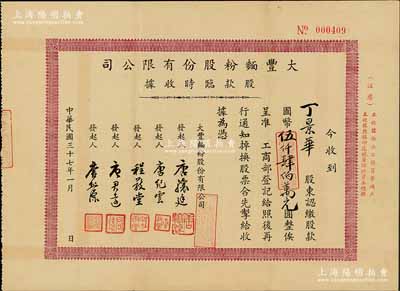 上海陽明拍賣
No 000409
司公限有份股粉麵豐大
據收時臨款股
今收到
丁景華 股東認繳股款
國幣伍仟肆佰萬元圓整俟
呈准 工商部登記給照後再
行通知掉換股票合先掣給收
據為憑
大豐麵粉股份有限公司
發起人
發起人 唐紀雲
發起人 程敬堂
發起人 唐君遠
發起人
中華民國三十七年一月 日